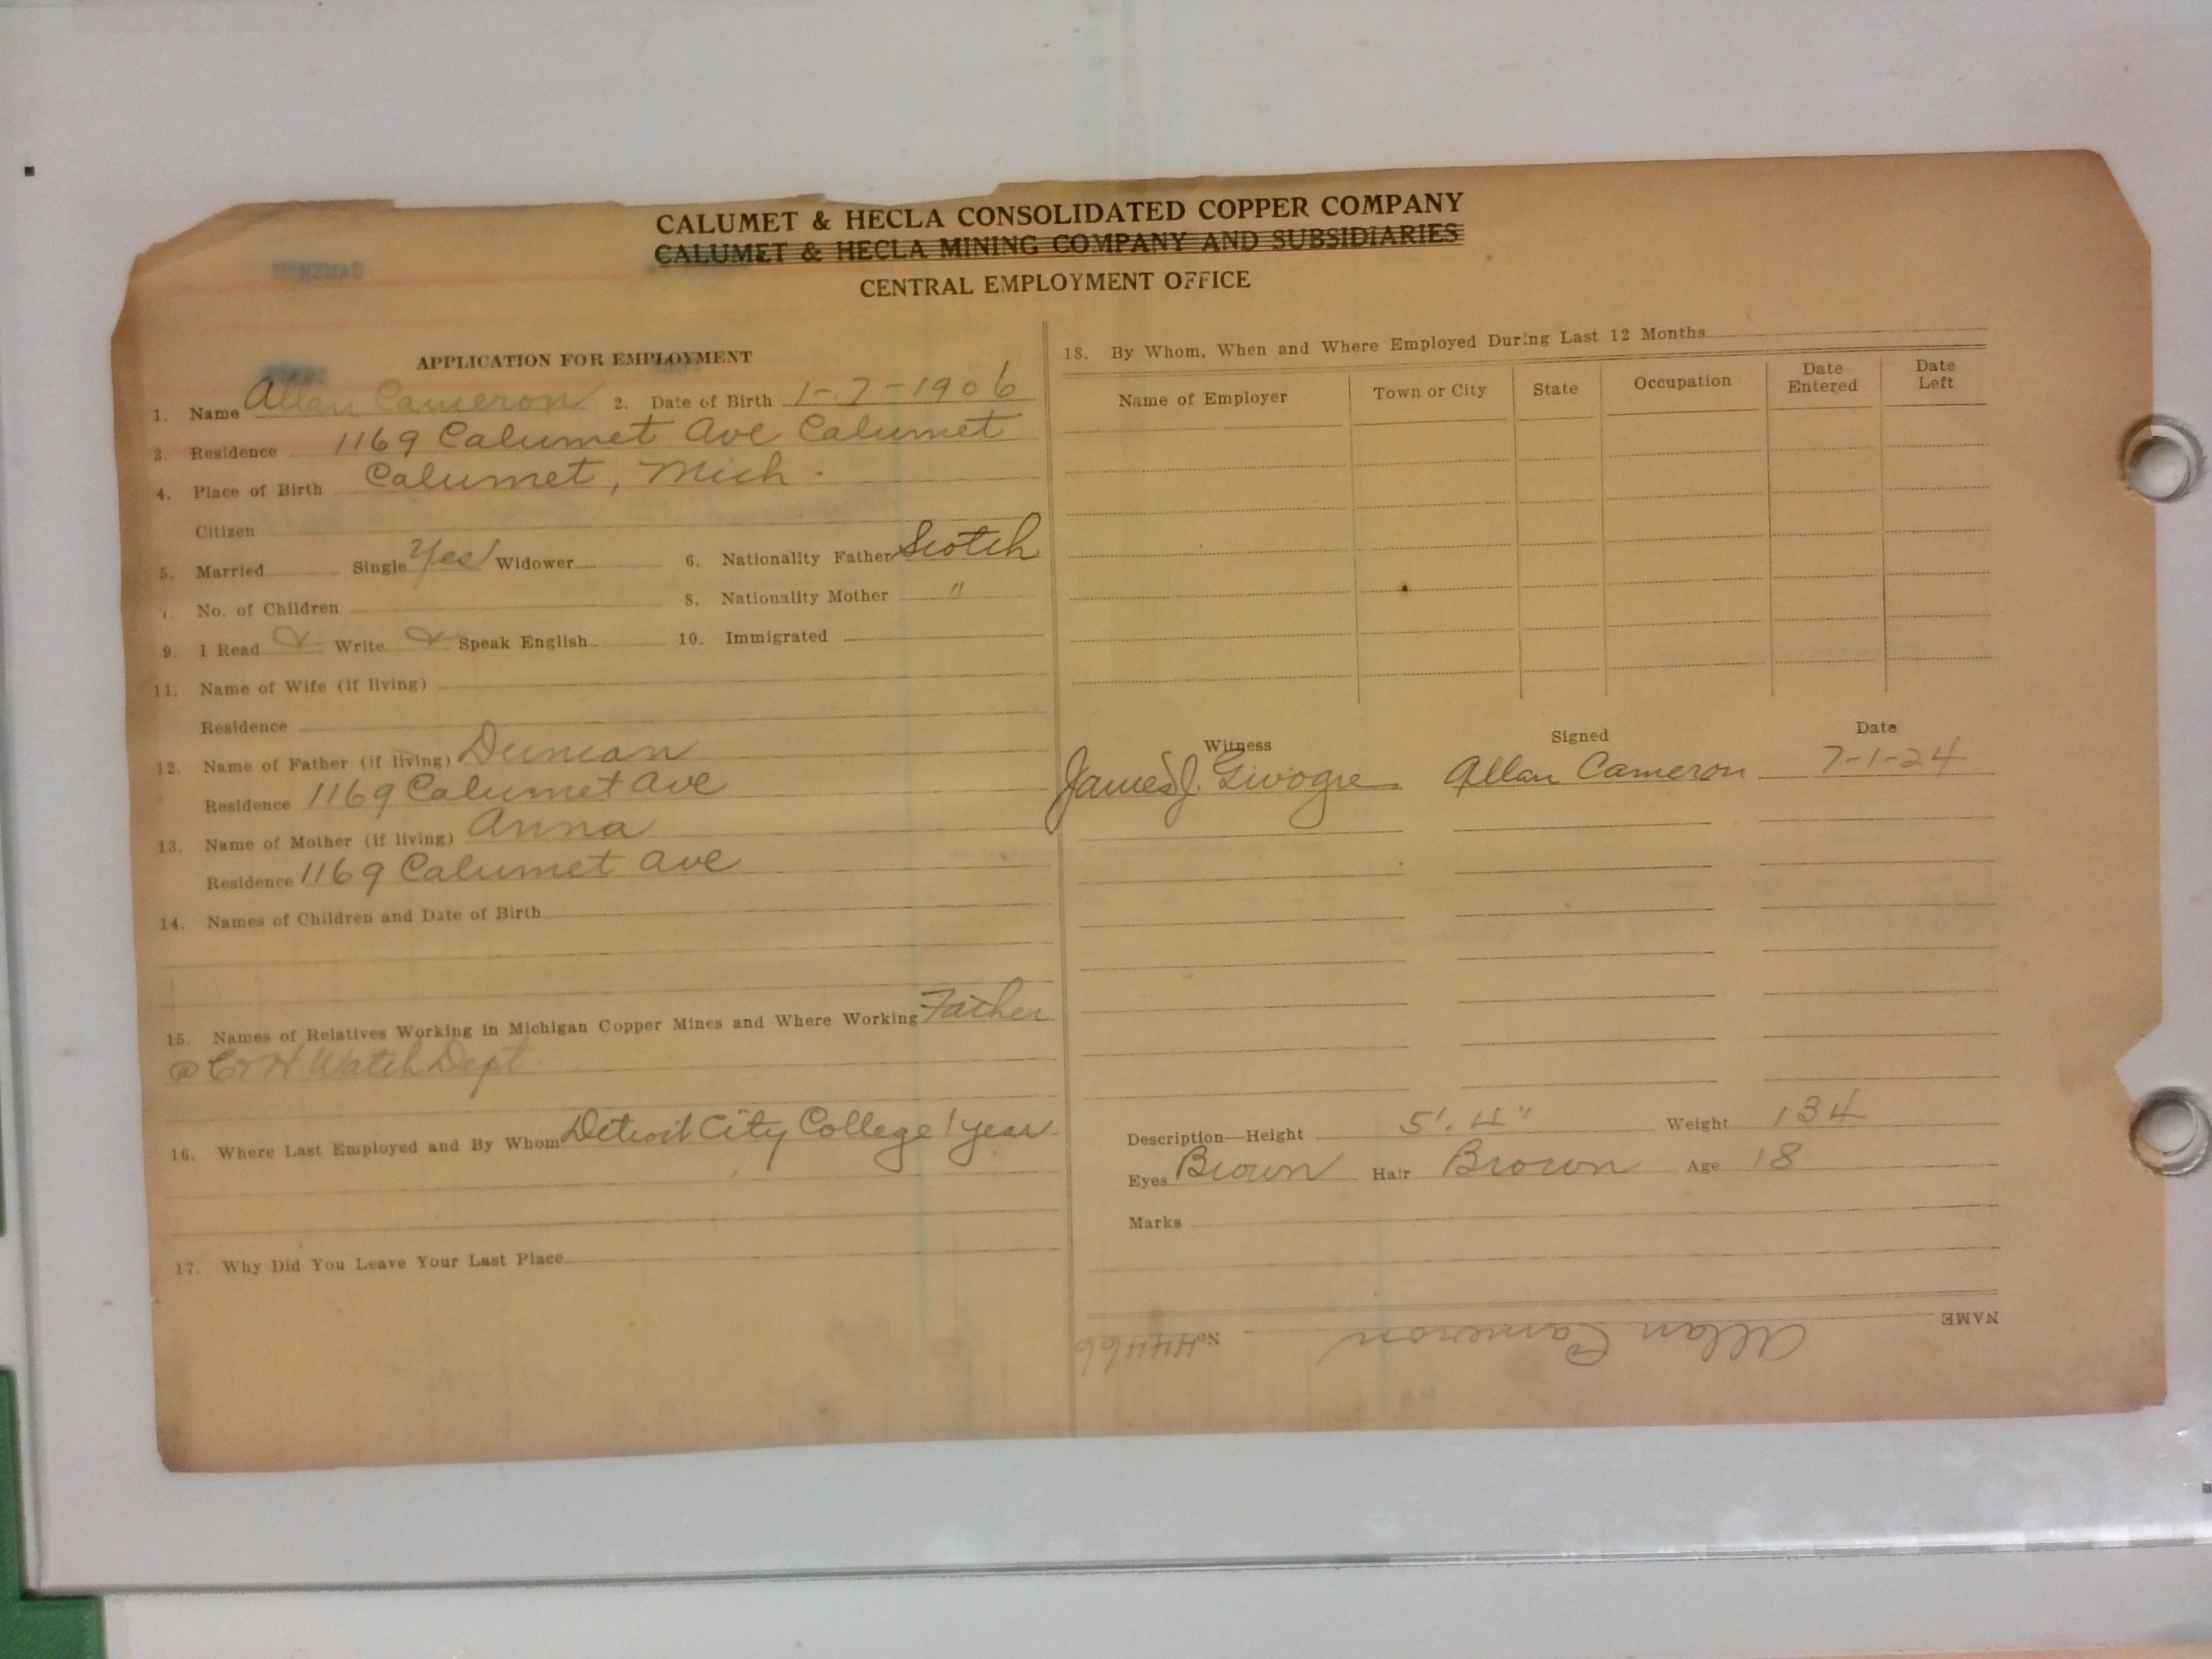 CALUMET & HECLA CONSOLIDATED COPPER COMPANY
CALUMET & HECLA MINING COMPANY AND SUBSIDIARIES
CENTRAL EMPLOYMENT OFFICE
APPLICATION FOR EMPLOYMENT
1. Name Allan Cameron 2. Date of Birth 1-7-1906
3. Residence 1169 Calumet Ave Calumet
4. Place of Birth Calumet, Mich.
Citizen
5. Married Single Yes Widower 6. Nationality Father Scotch
7. No. of Children 8. Nationality Mother "
9. I Read Write Speak English 10. Immigrated
11. Name of Wife (if living)
Residence
12. Name of Father (if living) Duncan
Residence 1169 Calumet Ave
13. Name of Mother (if living) Anna
Residence 1169 Calumet Ave
14. Names of Children and Date of Birth
15. Names of Relatives Working in Michigan Copper Mines and Where Working Father
@ C & H Watch Dept.
16. Where Last Employed and By Whom Detroit City College 1 year
17. Why Did You Leave Your Last Place
18. By Whom, When and Where Employed During Last 12 Months
Name of Employer Town or City State Occupation Date Entered Date Left
Witness Signed Date
James J. Allan Cameron 7-1-24
Description—Height 5'. 4" Weight 134
Eyes Brown Hair Brown Age 18
Marks
NAME Allan Cameron No. 44466